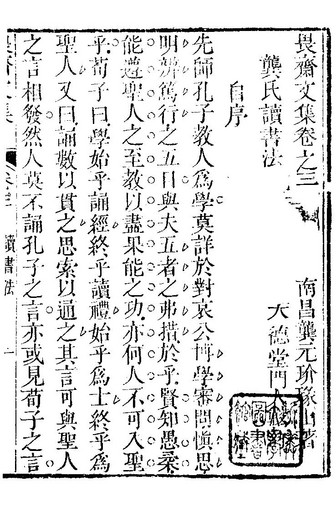 畏齋文集卷之三
南昌龔元玠瑑山著
龔氏讀書法
大德堂門人
自序
先師孔子教人爲學莫詳於對哀公博學審問愼思
明辨篤行之五目與夫五者之弗措於乎賢知愚柔
能遵聖人之至教以盡果能之功亦何人不可入聖
乎荀子曰學始乎誦經終乎讀禮始乎爲士終乎爲
聖人又曰誦數以貫之思索以通之其言可與聖人
之言相發然人莫不誦孔子之言亦或見荀子之言
讀書法 一